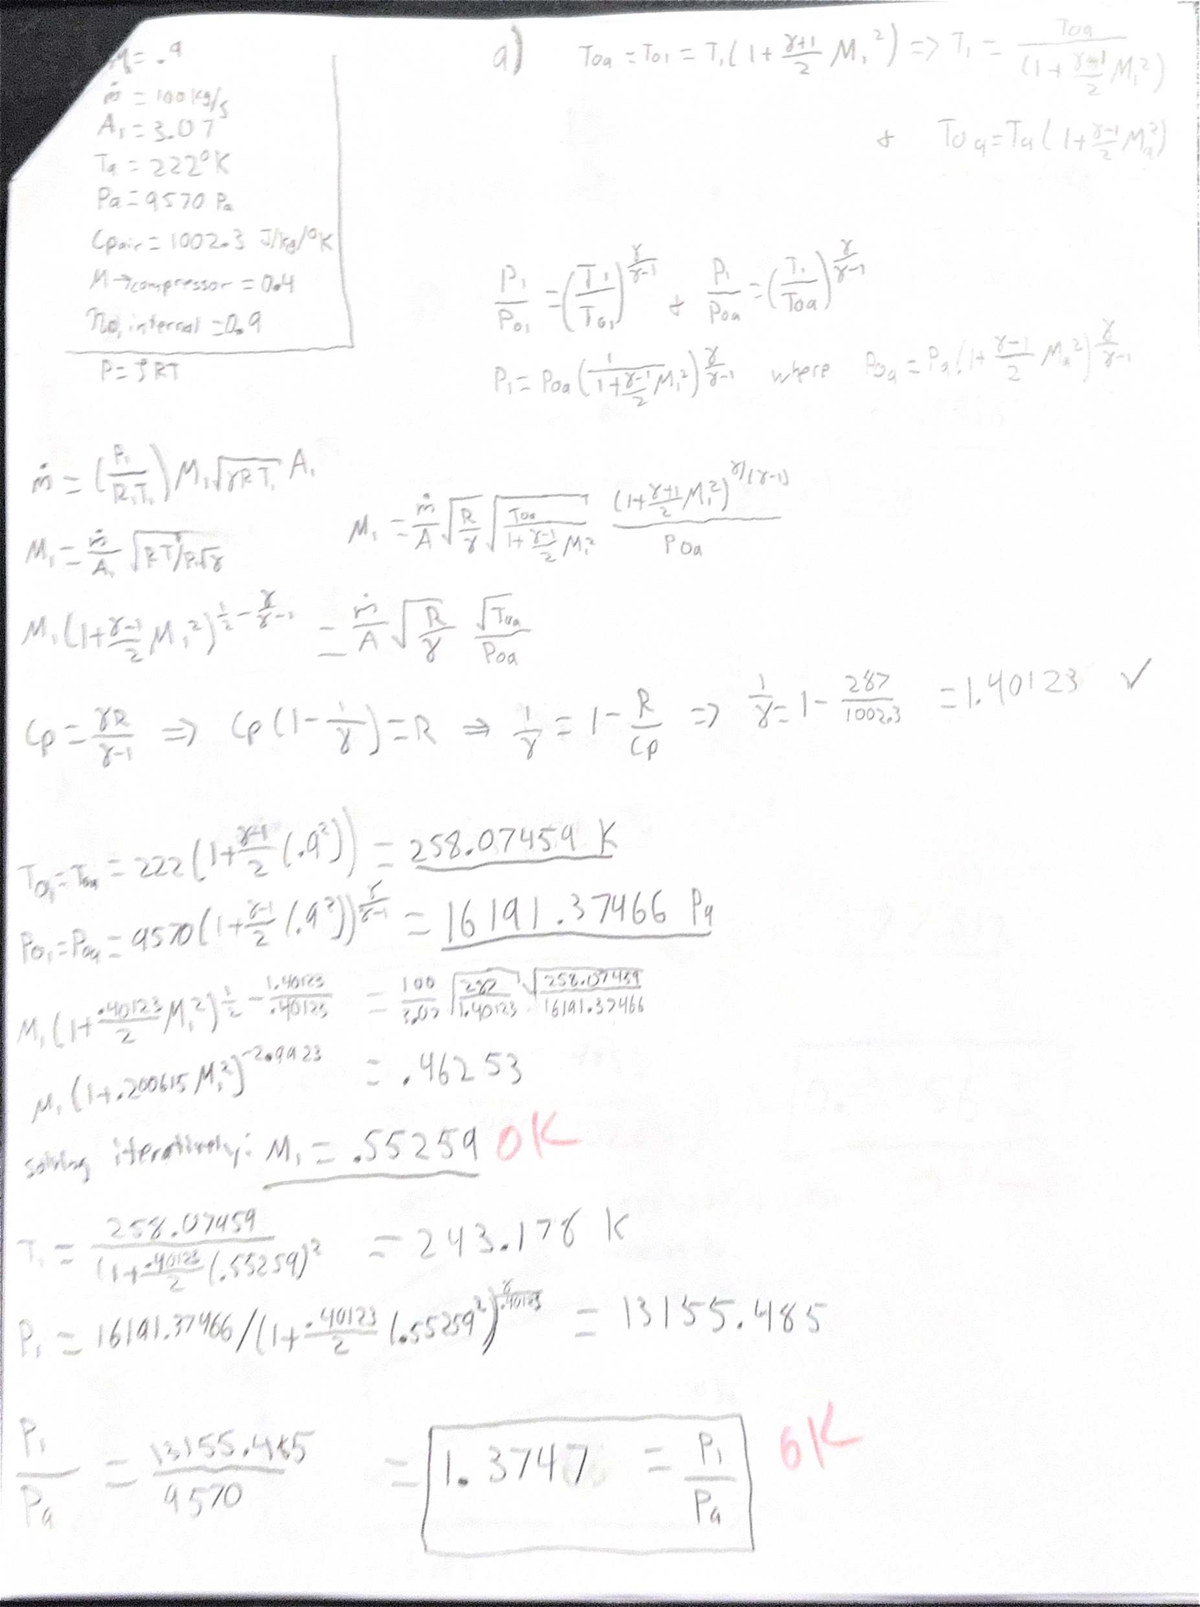 M = .9
ṁ = 100 kg/s
A₁ = 3.07
Ta = 222°K
Pa = 9570 Pa
Cpair = 1002.3 J/kg/°K
M→compressor = 0.4
no, internal = 0.9
P = ρRT
a) Toa = To1 = T₁(1 + γ+1/2 M₁²) => T₁ = Toa/(1 + γ-1/2 M₁²)
+ Toa = Ta(1 + γ-1/2 Ma²)
P₁/Po₁ = (T₁/To₁)^(γ/γ-1) + P₁/Poa = (T₁/Toa)^(γ/γ-1)
P₁ = Poa(1/(1 + γ-1/2 M₁²))^(γ/γ-1) where Poa = Pa(1 + γ-1/2 Ma²)^(γ/γ-1)
ṁ = (P₁/R₁T₁) M₁√(γRT₁) A₁
M₁ = ṁ/A₁ √(RT₁)/P₁√γ
M₁ = ṁ/A √(R/γ) √(Toa/(1 + γ-1/2 M₁²)) (1 + γ+1/2 M₁²)^(γ/(γ-1))/Poa
M₁(1 + γ-1/2 M₁²)^(1/2 - γ/γ-1) = ṁ/A √(R/γ) √Toa/Poa
Cp = γR/γ-1 => Cp(1 - 1/γ) = R => 1/γ = 1 - R/Cp => 1/γ = 1 - 287/1002.3 = 1.40123 ✓
To₁ = Toa = 222(1 + γ-1/2 (.9²)) = 258.07459 K
Po₁ = Poa = 9570(1 + γ-1/2 (.9²))^(γ/γ-1) = 16191.37466 Pa
M₁(1 + .40123/2 M₁²)^(1/2 - 1.40123/.40123) = 100/3.07 √(287/1.40123) √258.07459/16191.37466
M₁(1 + .200615 M₁²)^-2.9923 = .46253
solving iteratively: M₁ = .55259 OK
T₁ = 258.07459/(1 + .40123/2 (.55259)² = 243.178 K
P₁ = 16191.37466/(1 + .40123/2 (.55259²)^(γ/.40123) = 13155.485
P₁/Pa = 13155.485/9570 = 1.3747 = P₁/Pa OK